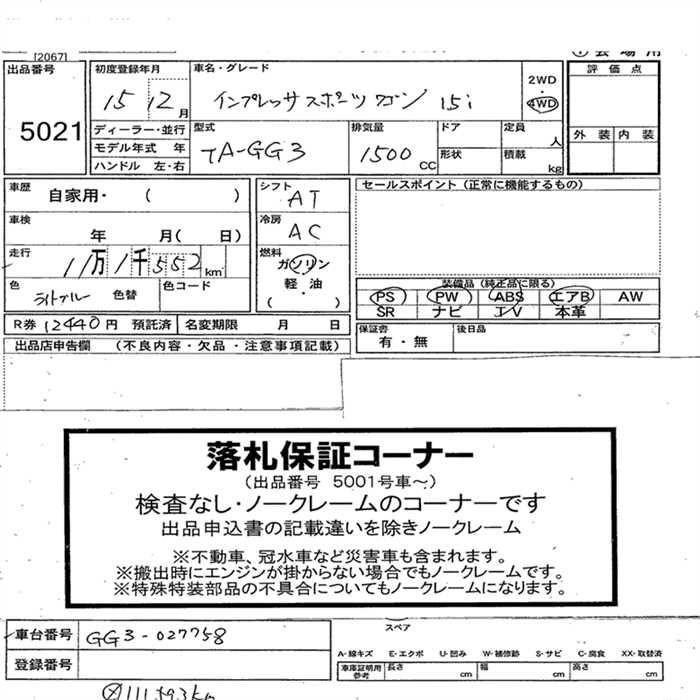 [2067]
① 会場用
出品番号
5021
初度登録年月
15 12月
車名・グレード
インプレッサスポーツワゴン 15i
2WD
・
4WD
評価点
外装 内装
ディーラー・並行
モデル年式 年
ハンドル 左・右
型式
TA-GG3
排気量
1500 CC
ドア
形状
定員
人
積載
kg
車歴
自家用・ ( )
車検
年 月( 日)
走行
11万1千552km
色
ライトブルー
色替
色コード
シフト
AT
冷房
AC
燃料
ガソリン
軽・油
( ・ )
セールスポイント (正常に機能するもの)
装備品 (純正品に限る)
PS PW ABS エアB AW
SR ナビ TV 本革
R券 12440円 預託済 名変期限 月 日
保証書
有・無
後日品
出品店申告欄 (不良内容・欠品・注意事項記載)
落札保証コーナー
(出品番号 5001号車～)
検査なし・ノークレームのコーナーです
出品申込書の記載違いを除きノークレーム
※不動車、冠水車など災害車も含まれます。
※搬出時にエンジンが掛からない場合でもノークレームです。
※特殊特装部品の不具合についてもノークレームになります。
車台番号 GG3-027758
登録番号
スペア
A-線キズ E-エクボ U-凹み W-補修跡 S-サビ C-腐食 XX-取替済
車庫証明用
参考
長さ cm 幅 cm 高さ cm